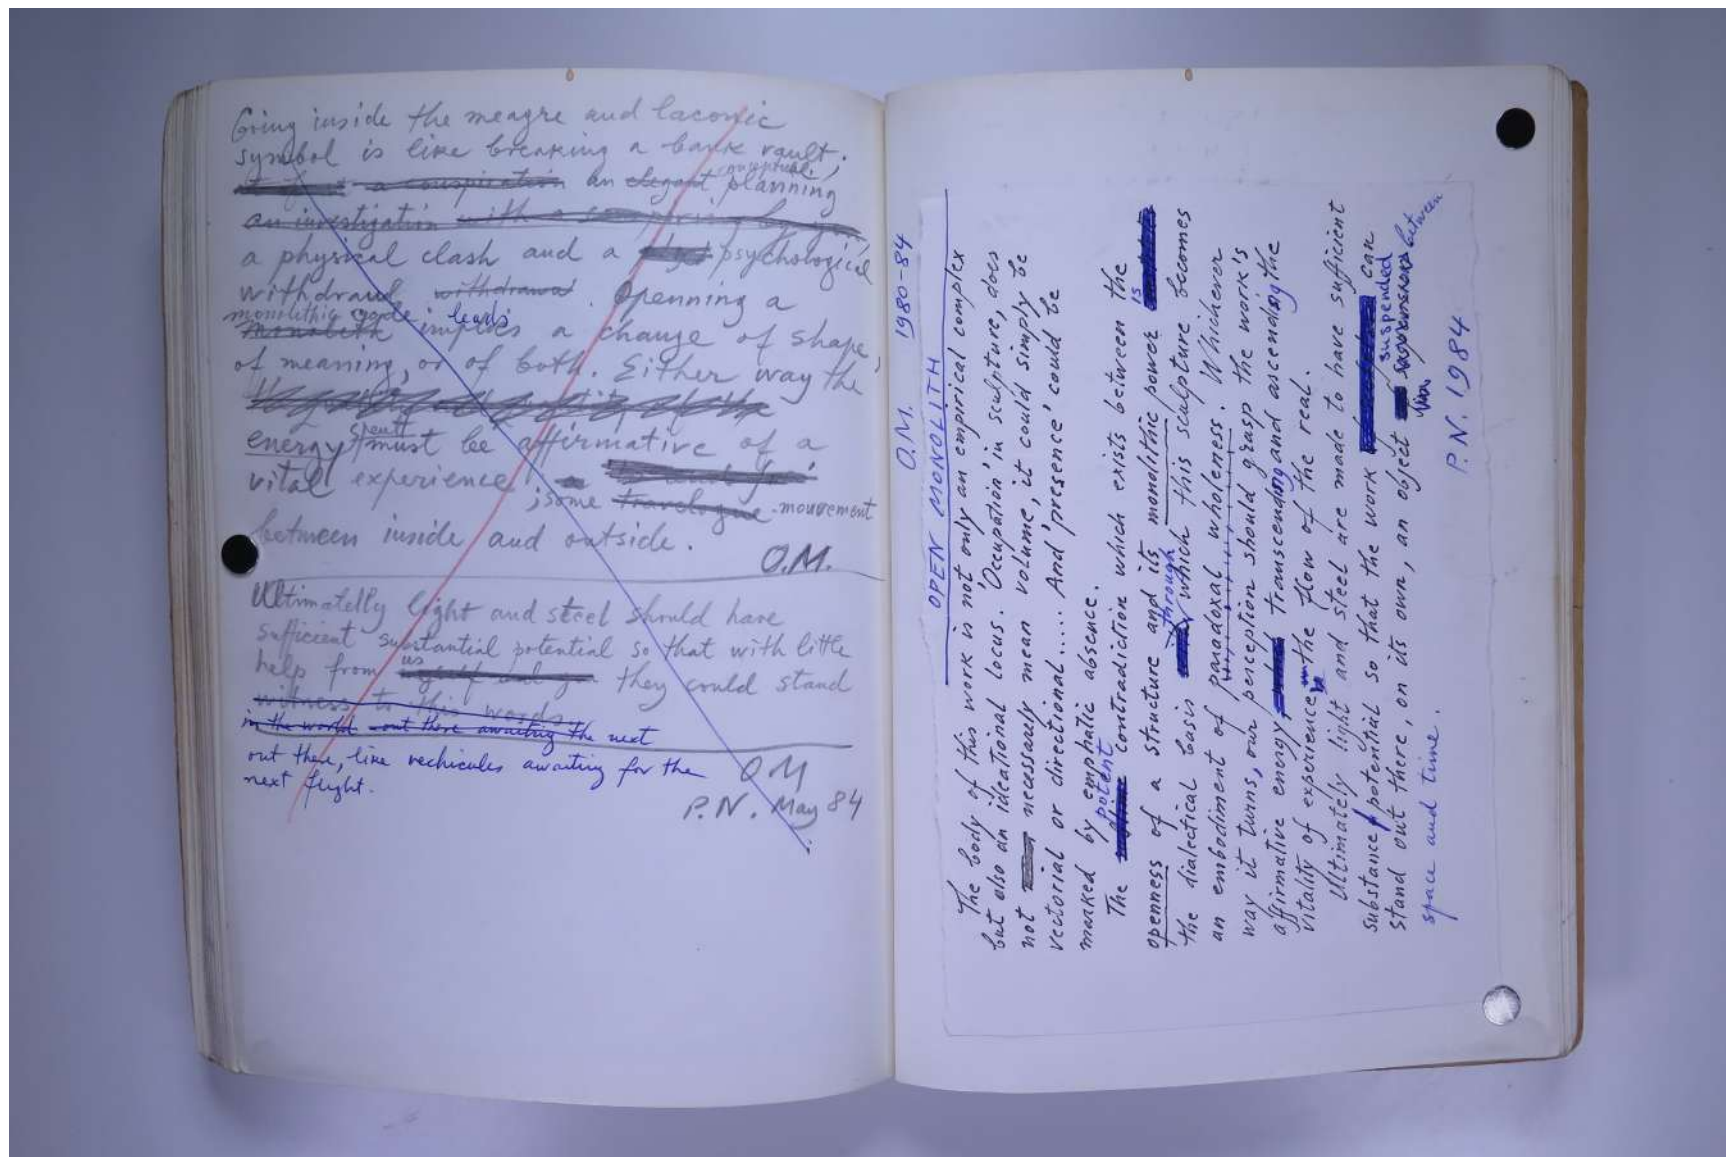 Going inside the meagre and laconic
symbol is like breaking a bank vault;
conceptual
a conspiration an elegant planning
an investigation with a conspiring
a physical clash and a psychological
withdrawl withdrawal. Openning a
monolithic code leads
monolith implies a change of shape,
of meaning, or of both. Either way the
energy spent must be affirmative of a
vital experience
; some travelogue mouvement
between inside and outside.
O.M.
Ultimatelly light and steel should have
sufficient substantial potential so that with little
help from us they could stand
witness to this words
in the world out there awaiting the next
out there, like vechicules awaiting for the
next flight.
O M
P.N. May 84
O.M. 1980-84
OPEN MONOLITH
The body of this work is not only an empirical complex
but also an ideational locus. 'Occupation' in sculpture, does
not necessarily mean volume, it could simply be
vectorial or directional ..... And 'presence' could be
marked by emphatic absence.
The potent contradiction which exists between the
openness of a structure and its monolithic power is
the dialectical basis through which this sculpture becomes
an embodiment of paradoxal wholeness. Whichever
way it turns, our perception should grasp the work's
affirmative energy transcending and ascending the
vitality of experience in the flow of the real.
Ultimately light and steel are made to have sufficient
substance potential so that the work can
stand out there, on its own, an object suspended between
space and time.
P.N. 1984